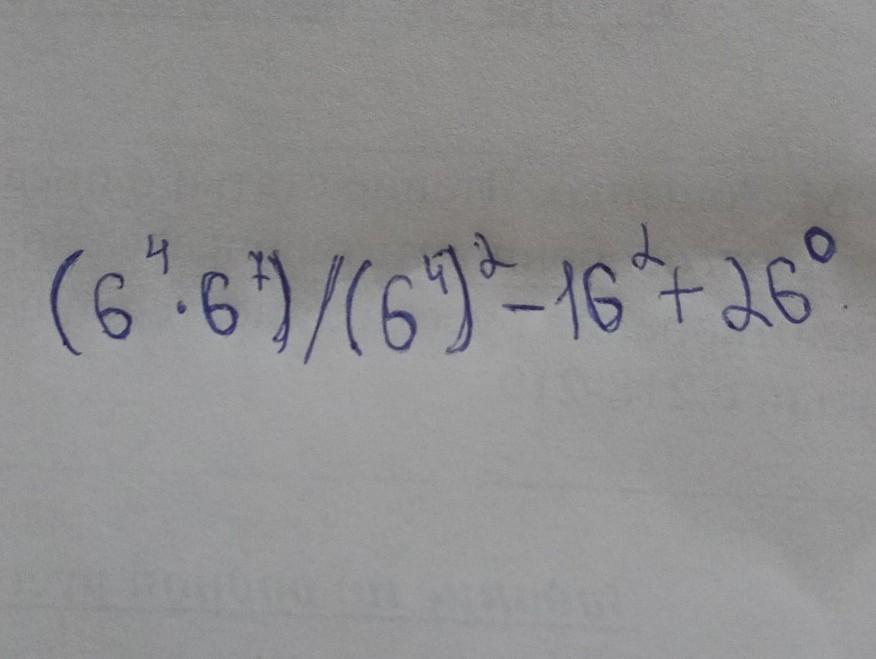 (6⁴·6⁷)/(6⁴)²-16²+26⁰